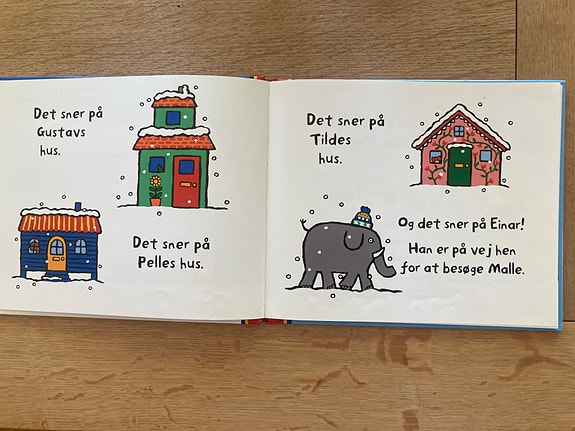 Det sner på
Gustavs
hus.
Det sner på
Pelles hus.
Det sner på
Tildes
hus.
Og det sner på Einar!
Han er på vej hen
for at besøge Malle.